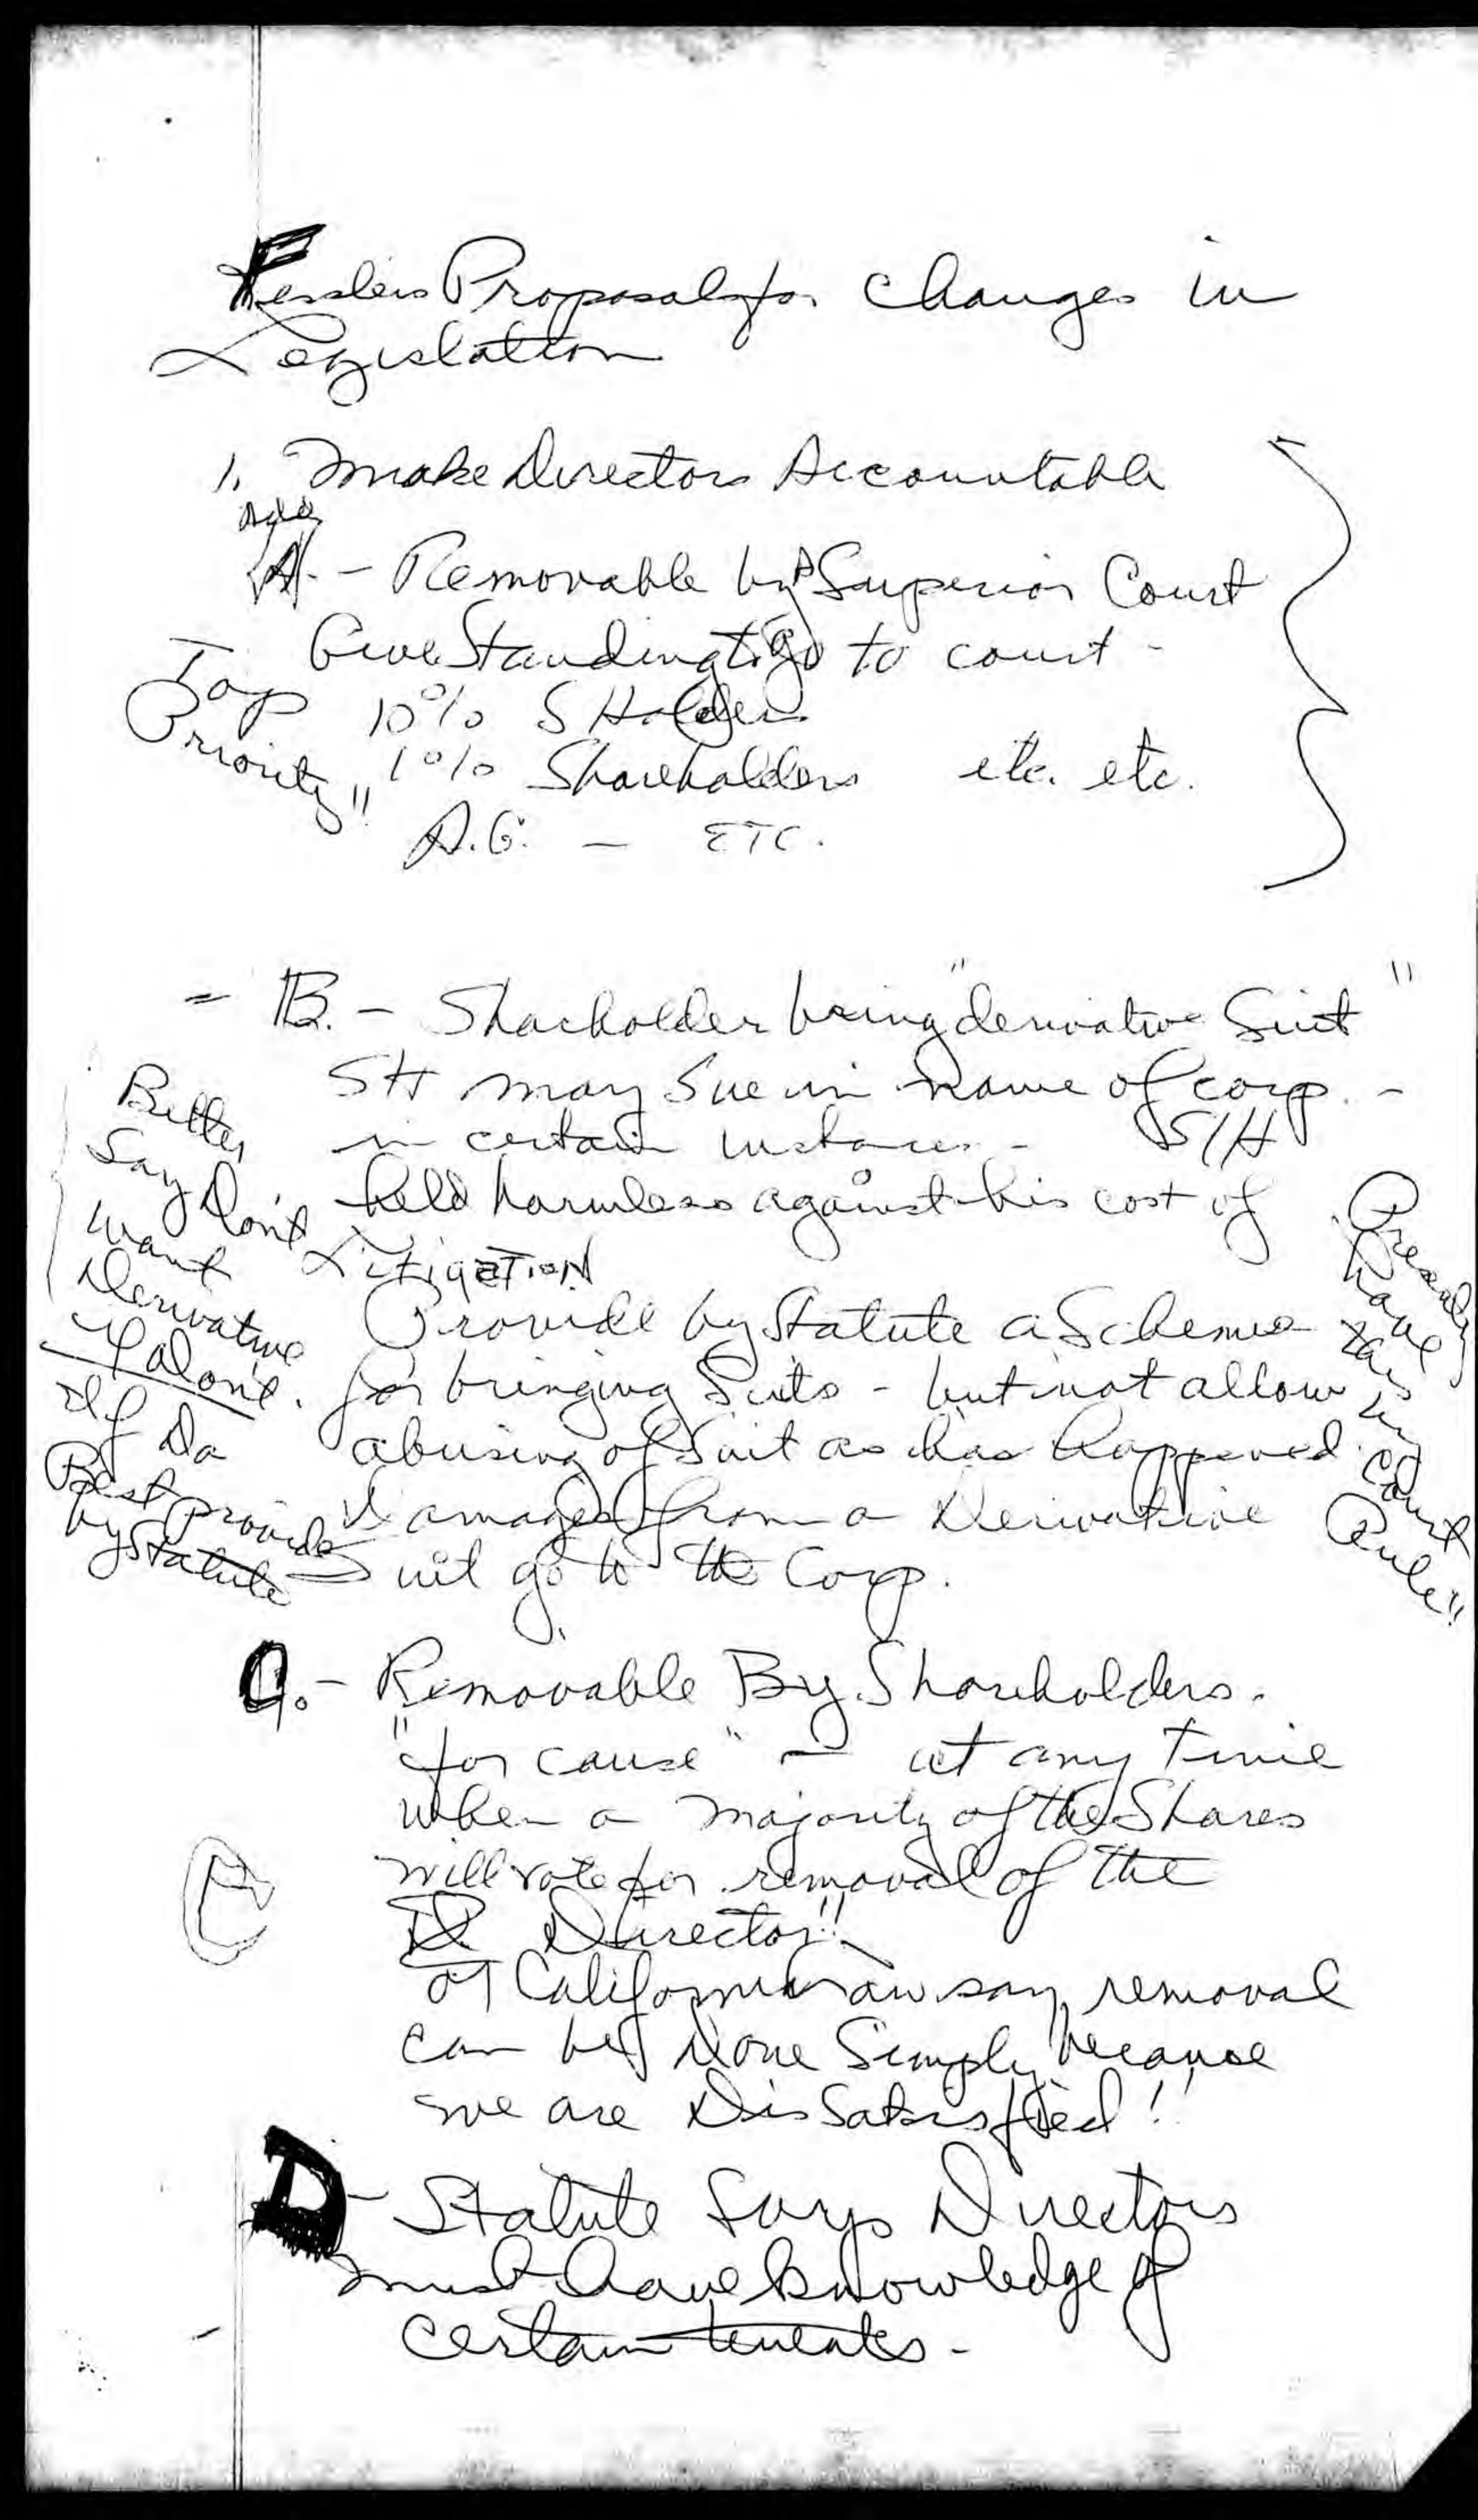 Proposals for changes in
Legislation
1. Make Directors Accountable
A. - Removable by Superior Court
Give Standing to go to court -
Top
Priority"
10% S Holders
1% Shareholders etc. etc.
A.G. - ETC.
= B. - Shareholder bring "derivative Suit"
SH may sue in name of corp. -
in certain instances - S/H
held harmless against his cost of
Litigation
Provide by Statute a Scheme
for bringing Suits - but not allow
abusing of Suit as has happened.
Damages from a Derivative
Suit go to the Corp.
Better
Say Don't
want
Derivative
If do
Best provide
by Statute
have
this
in
Court
Rule"
C. - Removable By Shareholders.
"for cause" - at any time
when a majority of the Shares
will vote for removal of the
D Director!!
C
California Law say removal
can be done Simply because
we are DisSatisfied!
D - Statute Says Directors
must have knowledge of
certain